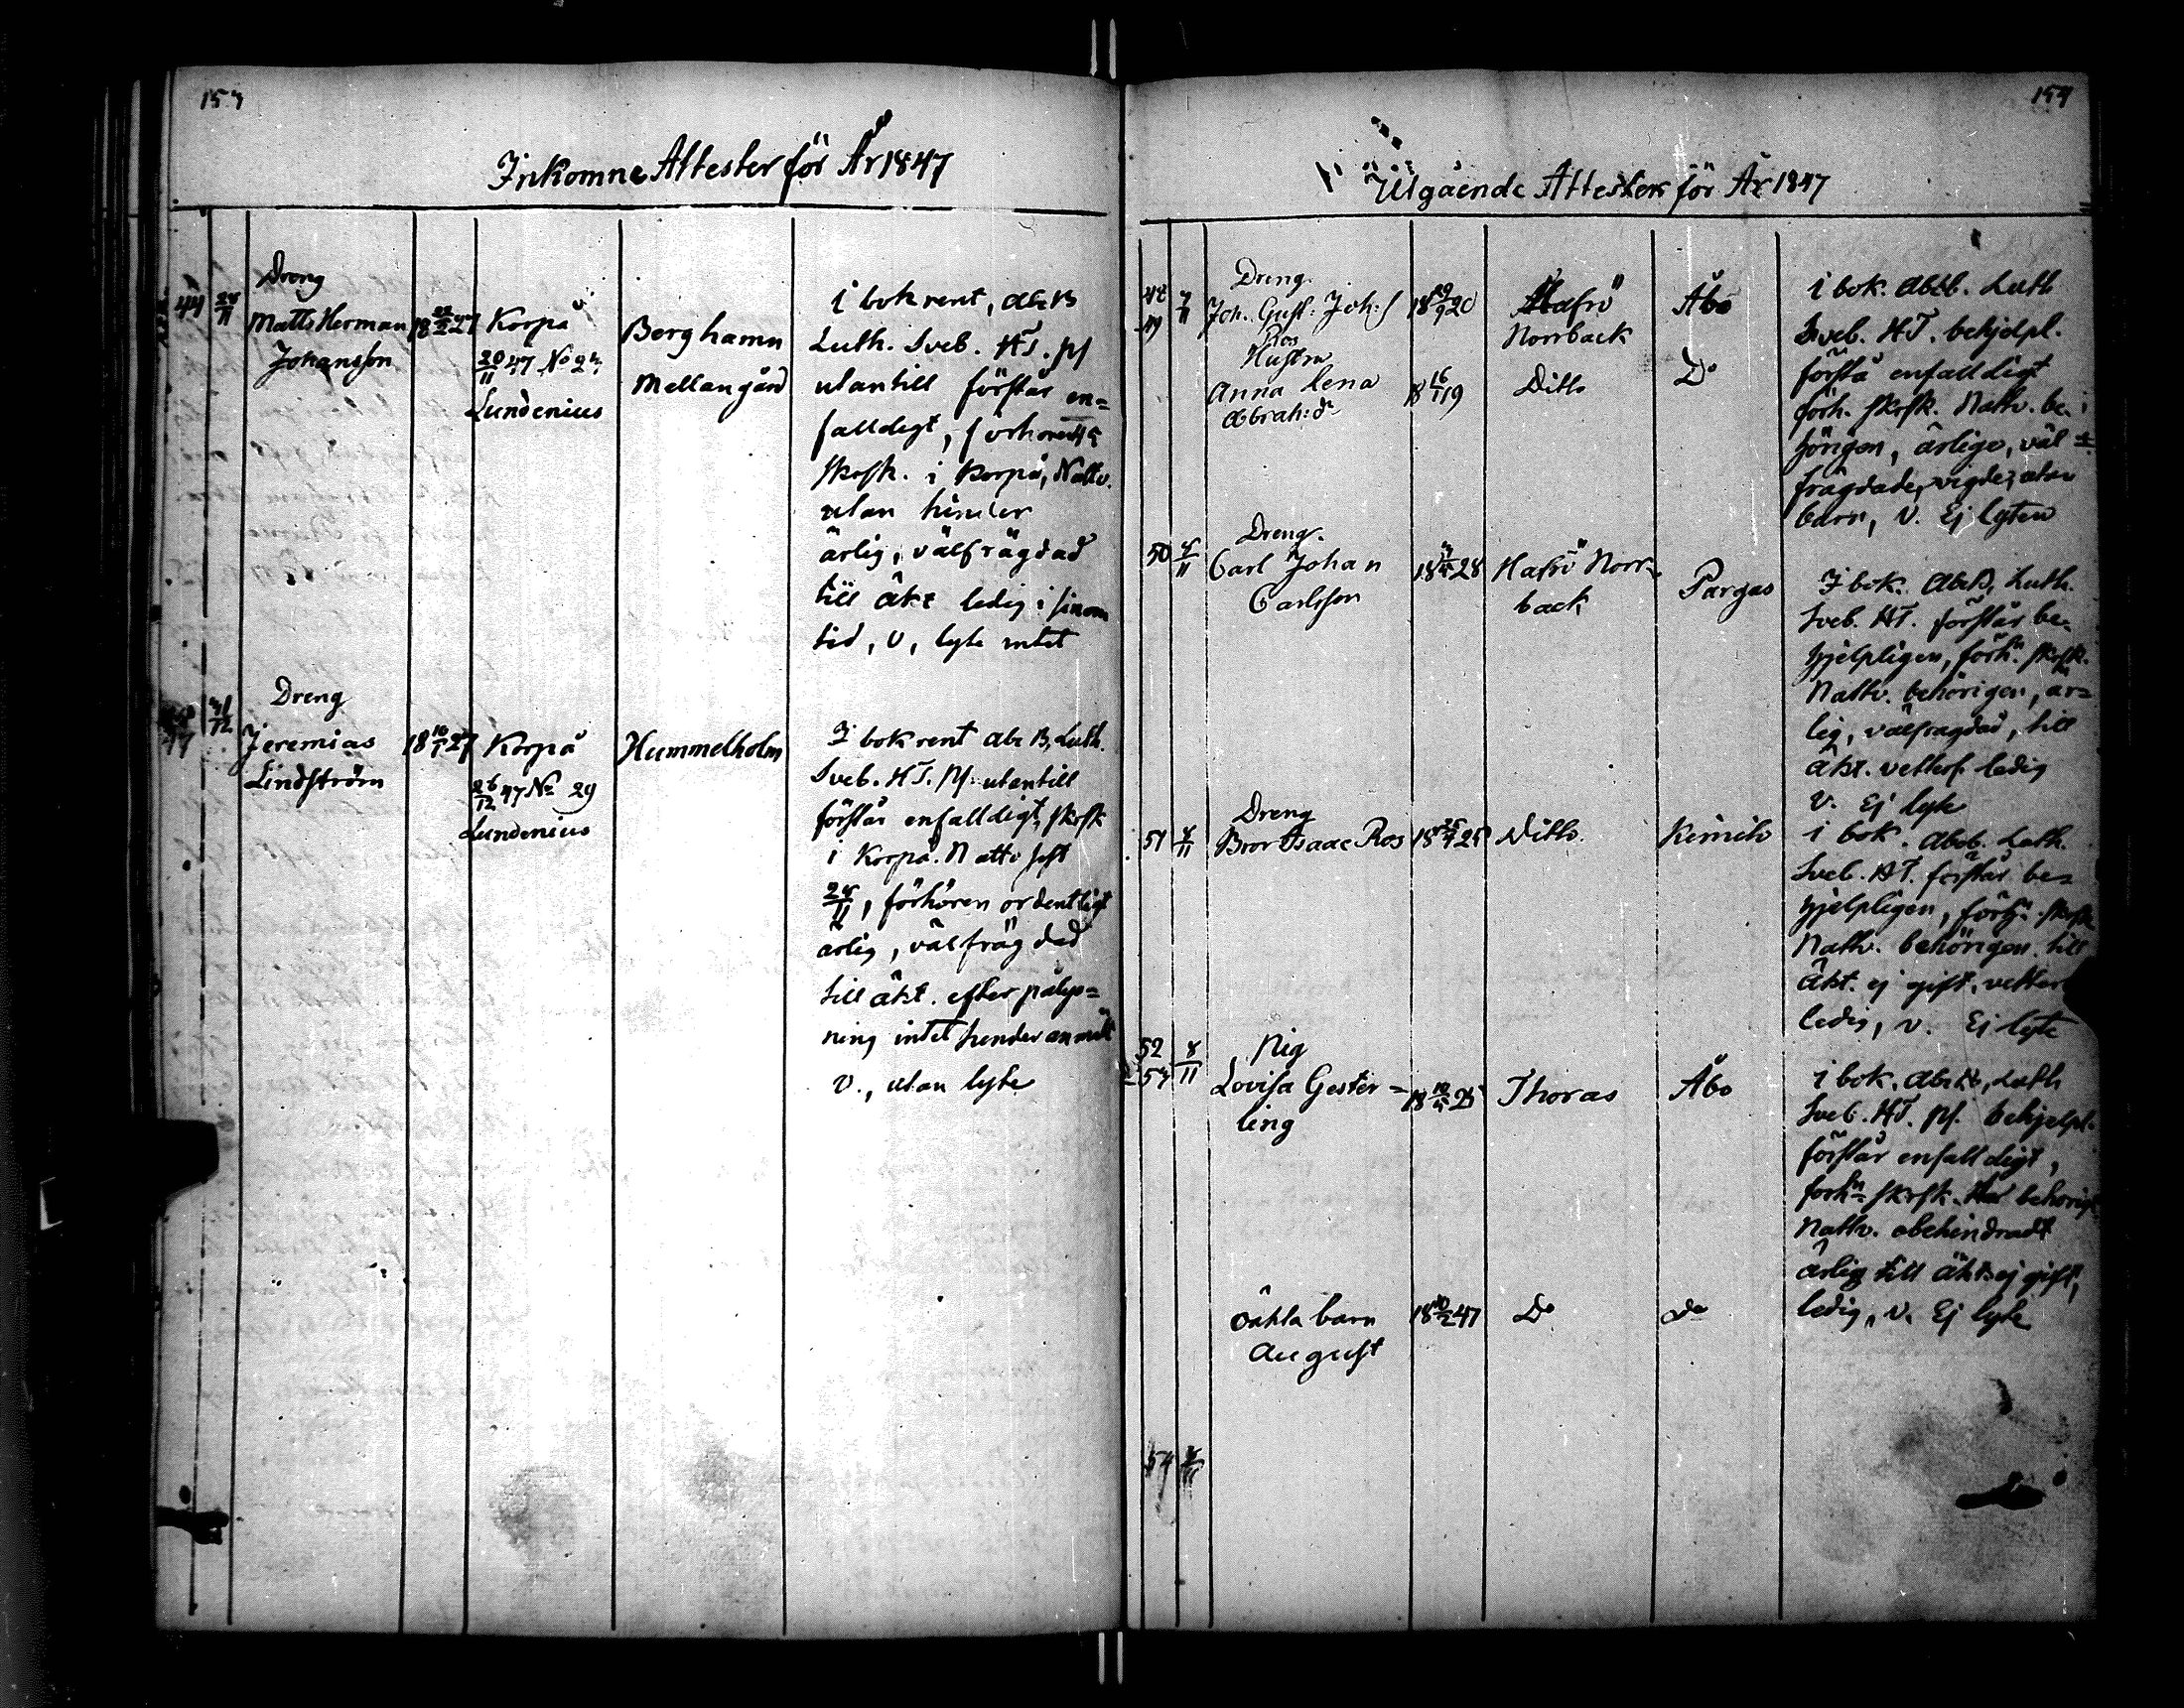 153
Inkomne Attester för År 1847
44 28/11
Dreng
Matts Herman
Johansson
18 22/2 27
Korpå
20/11 47 No 23
Lundenius
Berghamn
Mellangård
i bok rent, abc B
Luth. Sveb. HT. ps
utantill förstår en=
falldigt, förhören 45
skrsk. i Korpå, Nattv.
utan hinder
ärlig, välfrägdad
till äkt ledig i sinom
tid, v, lyte intet
31/12
Dreng
Jeremias
Lindström
18 16/1 27
Korpå
26/12 47 No 29
Lundenius
Hummelholm
I bok rent abc B, Luth.
Sveb. HT. ps. utantill
förstår enfalldigt, skrsk
i Korpå. Nattv sist
28/11, förhören ordentligt
ärlig, välfrägdad
till äkt. efter pålys=
ning intet hinder anmält
v., utan lyte
154
Utgående Attester för År 1847
48
49
7/11
Dreng.
Joh. Gust: Joh:s
Ros
Hustru
Anna Lena
Abrah:dr
18 29/9 20
18 16/1 19
Nafvö
Norrback
Ditto
Åbo
Do
i bok. abcb. Luth
Sveb. HT. behjelpl.
förstå enfalldigt
förh. skrsk. Nattv. be-
hörigen, ärlige, väl=
frägdade, vigde, utan
barn, v. Ej lyten
50
Dreng.
Carl Johan
Carlsson
28
Nafvö Norr-
back
Pargas
I bok. abcb, Luth.
Sveb. HT. förstår be-
hjelpligen, förh:n skrsk.
Nattv. behörigen, är=
lig, välfrägdad, till
äkt. vetterl. ledig
v. Ej lyte
51
Dreng
Bror Isaac Ros
Ditto.
Kimito
i bok. abcb. Luth.
Sveb. HT. förstår be=
hjelpligen, förh:n skrsk
Nattv. behörigen. till
äkt. ej gift, vetterl
ledig, v. Ej lyte
52
53
8/11
Pig
Lovisa Gester=
ling
Thoras
Åbo
i bok. abcb, Luth
Sveb. HT. ps. behjelpl.
förstår enfalldigt,
forhn skrsk. behörigt
Nattv. obehindradt
ärlig till äkt. ej gift,
ledig, v. Ej lyte
Oäkta barn
August
18 10/2 47
Do
do
54